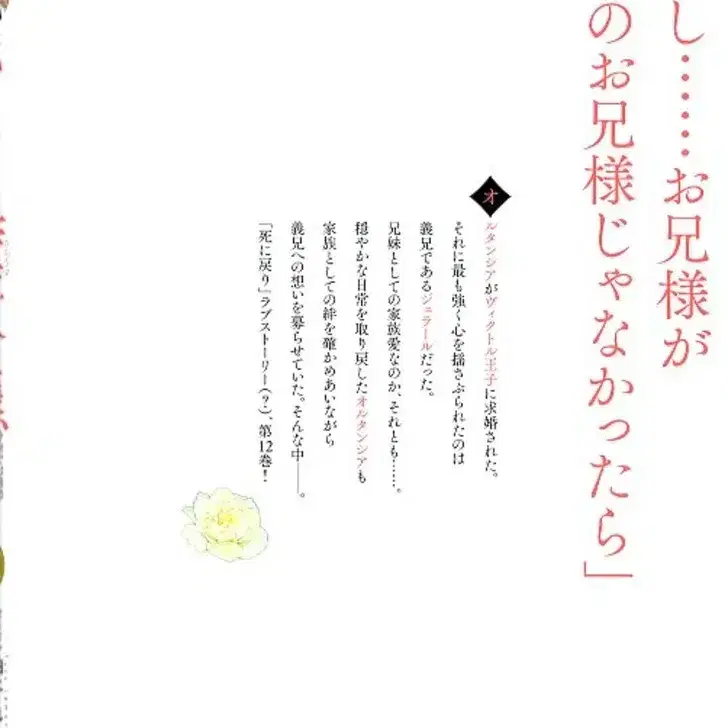 し……お兄様が
のお兄様じゃなかったら」
オルタンシアがヴィクトル王子に求婚された。
それに最も強く心を揺さぶられたのは
義兄であるジェラールだった。
兄妹としての家族愛なのか、それとも……。
穏やかな日常を取り戻したオルタンシアも
家族としての絆を確かめあいながら
義兄への想いを募らせていた。そんな中——。
「死に戻り」ラブストーリー(?)、第12巻!